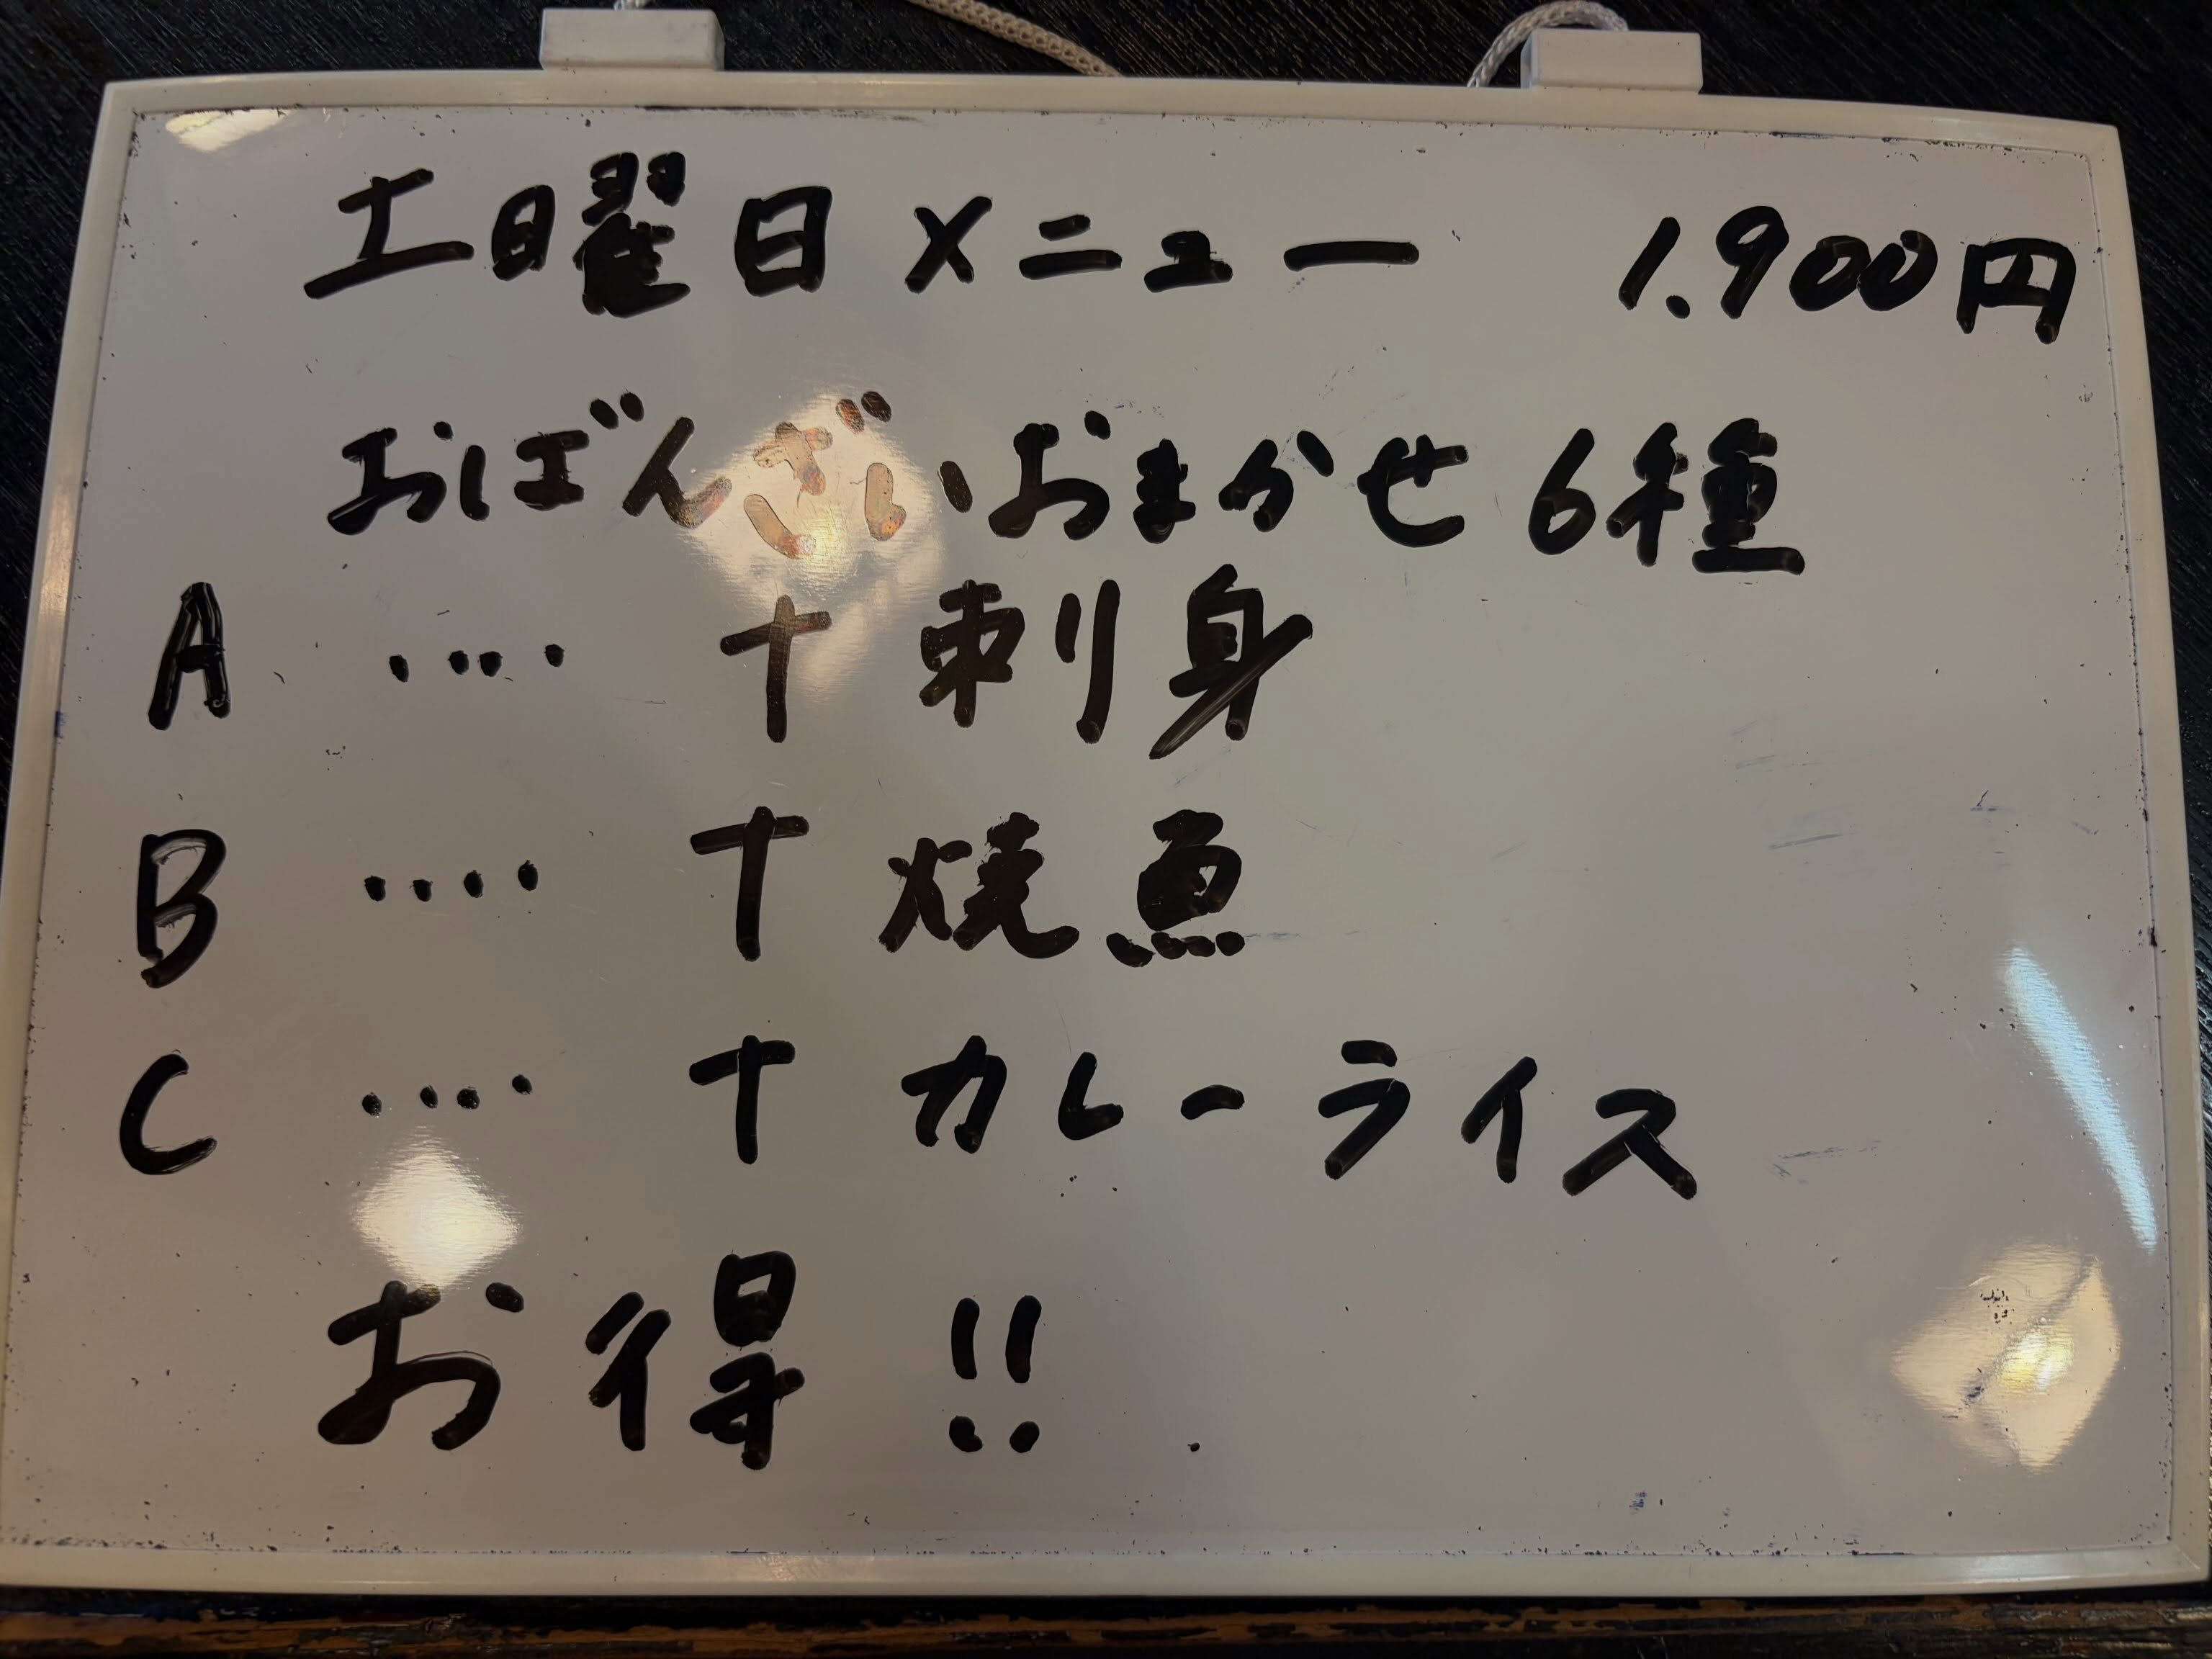 土曜日メニュー 1.900円
おばんざいおまかせ6種
A ‥‥ +刺身
B ‥‥ +焼魚
C ‥‥ +カレーライス
お得!!